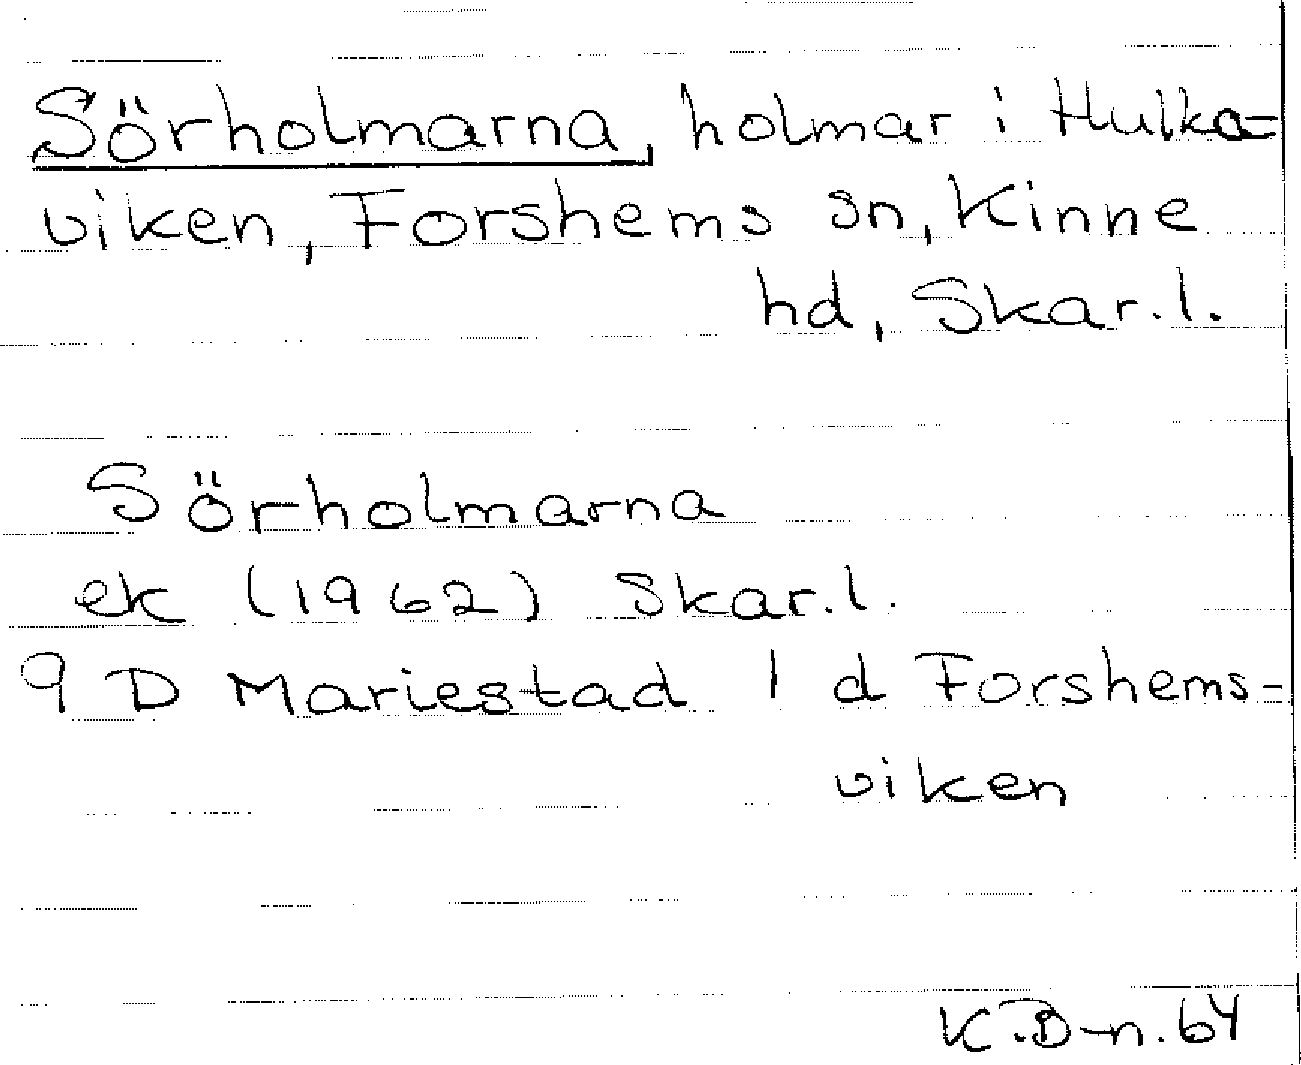 Sörholmarna, holmar i Hulka=
viken, Forshems sn, Kinne
hd, Skar.l.
Sörholmarna
ek (1962) Skar.l.
9 D Mariestad 1 d Forshems=
viken
K.B-n. 64